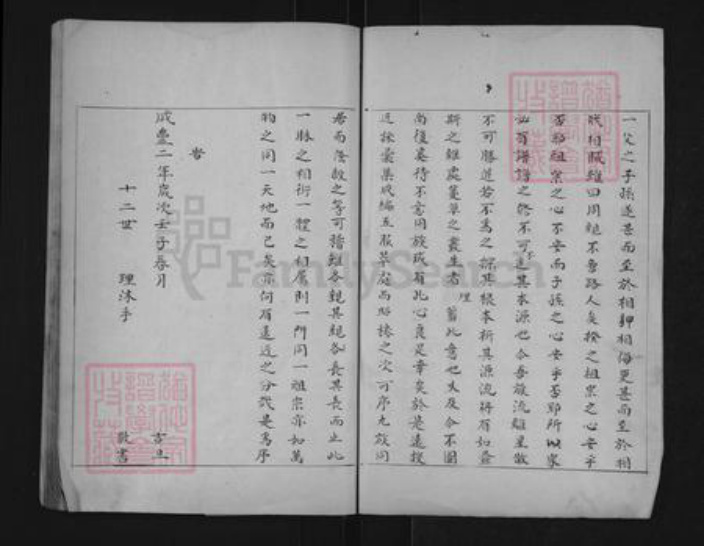 一父之子孫遂甚而至於相狎相侮更甚而至於相
戕相賊雖四周親不啻路人矣揆之祖宗之心安乎
否耶祖宗之心不安而子孫之心安乎否耶所以家
必有譜譜之修不可不追其本源也今吾族流離星散
不可勝道若不為之探其根本析其源流將有如
斯之雜處蔓草之叢生者理蓄此意也久及今不圖
而後奚待不意同族咸有此心良是幸矣於是遠搜
近採彙集成編五服昭穆之次可序凡族同
者而隆殺之等可稽親各親其親各長其長而止此
一脉之相衍一體之相屬則一門同一祖宗亦如萬
物之同一天地而已矣亦何有遠近之分哉是為序
咸豐二年歲次壬子春月
十二世 理沐手
敬書
FamilySearch